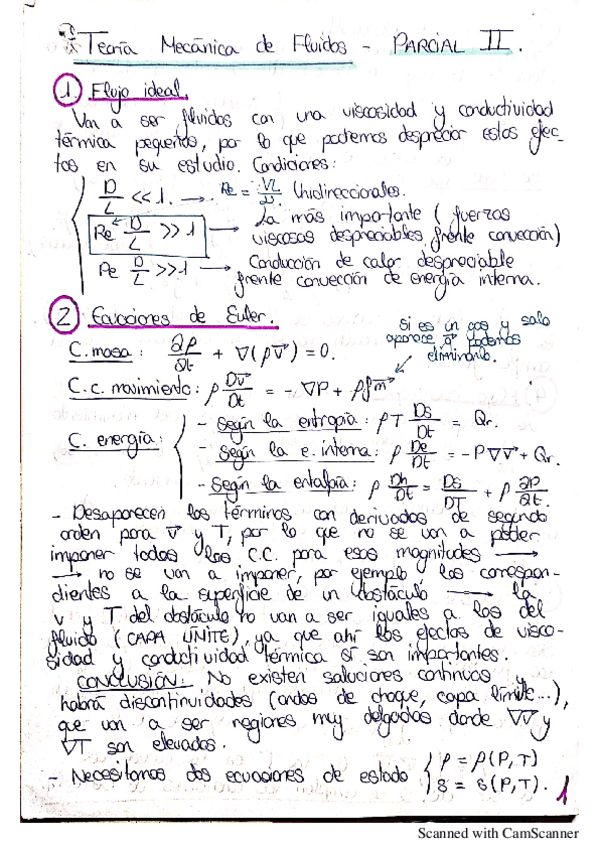 Teoría Mecánica de Fluidos - PARCIAL II.
1. Flujo ideal.
Van a ser fluidos con una viscosidad y conductividad
térmica pequeñas, por lo que podemos despreciar estos efec-
tos en su estudio. Condiciones:
D/L << 1. → Unidireccionales.
Re D/L >> 1 → La más importante (fuerzas
viscosas despreciables frente convección)
Pe D/L >> 1 → Conducción de calor despreciable
frente convección de energía interna.
2 Ecuaciones de Euler.
Si es un gas y solo
aparece podemos
eliminarlo.
C. masa: ∂ρ/∂t + ∇(ρv⃗) = 0.
C.c. movimiento: ρ Dv⃗/Dt = -∇P + ρf⃗m
C. energía:
- Según la entropía: ρT Ds/Dt = Qr.
- Según la e. interna: ρ De/Dt = -P∇v⃗ + Qr.
- Según la entalpía: ρ Dh/Dt = Ds/DT + ρ ∂P/∂t.
- Desaparecen los términos con derivadas de segundo
orden para v⃗ y T, por lo que no se van a poder
imponer todas las C.C. para esas magnitudes →
→ no se van a imponer, por ejemplo, las correspon-
dientes a la superficie de un obstáculo → la
v y T del obstáculo no van a ser iguales a las del
fluido (CAPA LÍMITE), ya que ahí los efectos de visco-
sidad y conductividad térmica sí son importantes.
CONCLUSIÓN: No existen soluciones continuas y
habrá discontinuidades (ondas de choque, capa límite...),
que van a ser regiones muy delgadas donde ∇v⃗ y
∇T son elevados.
- Necesitamos dos ecuaciones de estado { ρ = ρ(P,T)
s = s(P,T).
1
Scanned with CamScanner